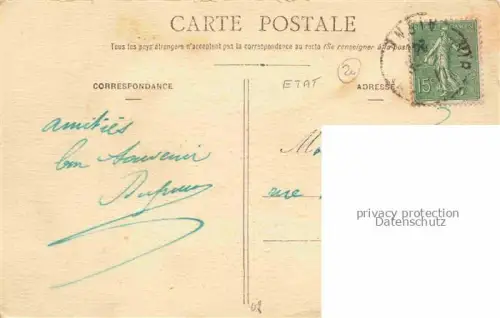 CARTE POSTALE
Tous les pays étrangers n'acceptent pas la correspondance au recto (Se renseigner à la poste)
CORRESPONDANCE
ADRESSE
ETAT
20
15
amitiés
bon Souvenir
rue
privacy protection
Datenschutz
02